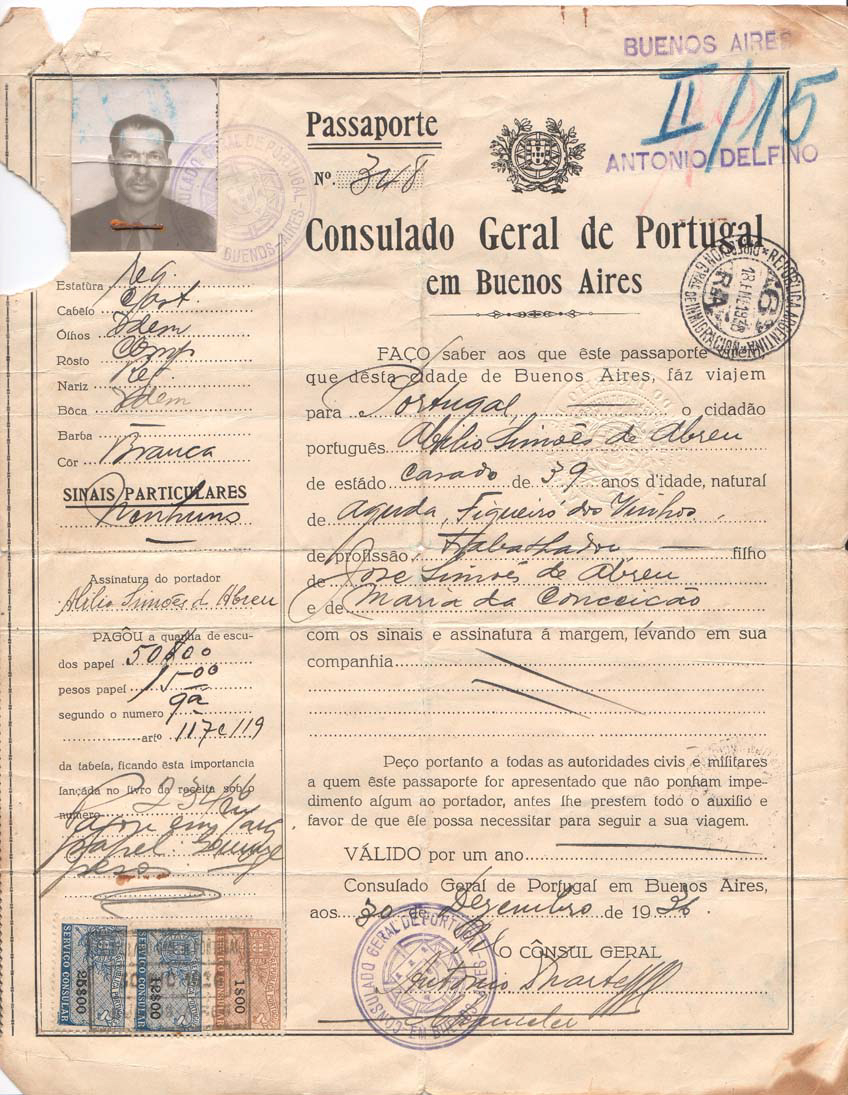 BUENOS AIRES
II/15
ANTONIO DELFINO
Passaporte
Nº. 348
Consulado Geral de Portugal
em Buenos Aires
CONSULADO GERAL DE PORTUGAL
BUENOS-AIRES
REPUBLICA ARGENTINA
18 ENE 193
Estatura reg.
Cabêlo Cast.
Ólhos Idem
Rosto Comp
Nariz Reg.
Bôca Idem
Barba —
Côr Branca
SINAIS PARTICULARES
Nenhuns
Assinatura do portador
Abilio Simões d Abreu
PAGÔU a quantia de escu-
dos papel 50$00
pesos papel 15-00
segundo o numero 9a
artº 117 e 119
da tabela, ficando ésta importancia
lançada no livro de receita sob o
numero 234
papel
pesos
FAÇO saber aos que êste passaporte virem,
que désta cidade de Buenos Aires, fáz viajem
para Portugal, o cidadão
português Abilio Simões de Abreu
de estádo casado de 39 anos d'idade, natural
de Aguda, Figueiró dos Vinhos.
de profissão Trabalhador filho
de José Simões de Abreu
e de Maria da Conceição
com os sinais e assinatura á margem, lévando em sua
companhia
Peço portanto a todas as autoridades civis e militares
a quem êste passaporte for apresentado que não ponham impe-
dimento algum ao portador, antes lhe prestem todo o auxilio e
favor de que êle possa necessitar para seguir a sua viagem.
VÁLIDO por um ano
Consulado Geral de Portugal em Buenos Aires,
aos 30 de Dezembro de 1936.
O CÔNSUL GERAL
Antonio
CONSULADO GERAL DE PORTUGAL
EM BUENOS-AIRES
SERVIÇO CONSULAR
25$00
SERVIÇO CONSULAR
SERVIÇO CONSULAR
1$00